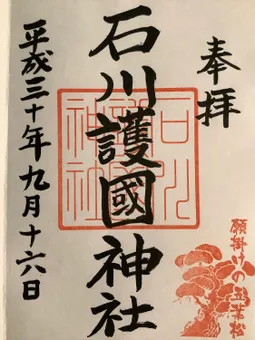 奉拝
石川護國神社
石川護國神社
願掛けの五葉松
平成三十年九月十六日